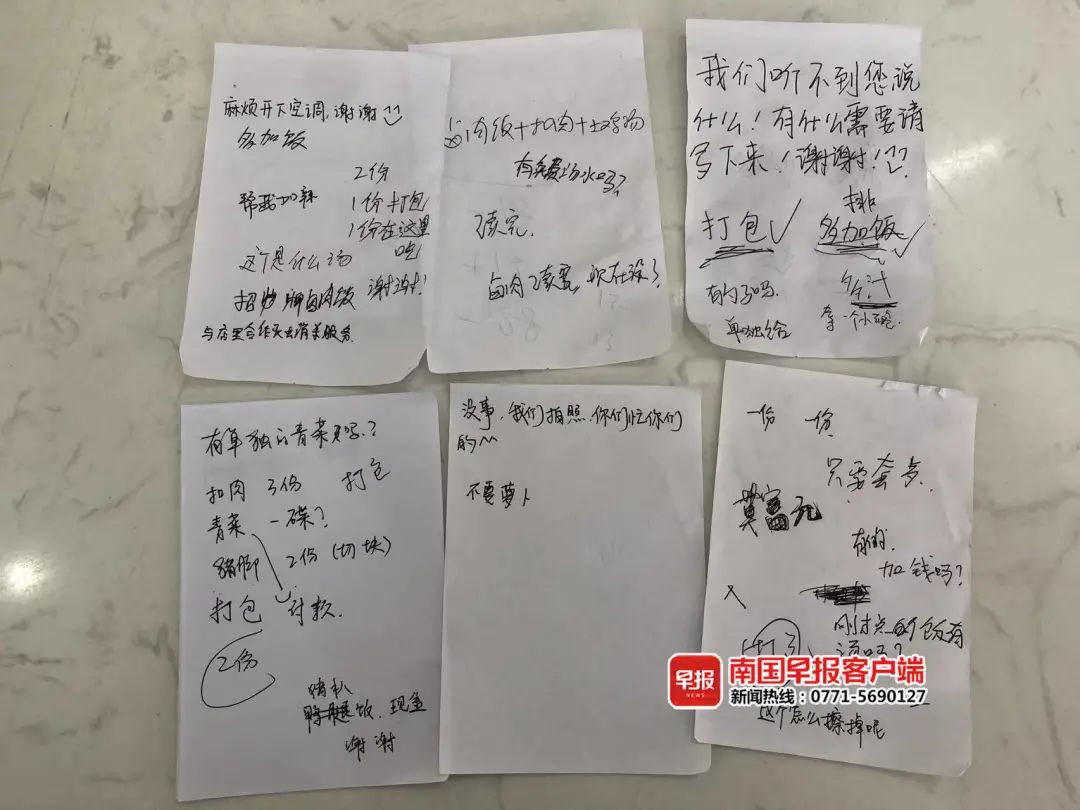 麻烦开下空调,谢谢
多加饭
2份
帮我加辣 1份打包
1份在这里
吃
这个是什么汤
招牌卤肉饭 谢谢!
卤肉饭+扣肉+土鸡汤
有免费汤水吗?
卖完.
卤肉 卖完,现在没了
我们听不到您说
什么!有什么需要请
写下来!谢谢!
打包 多加饭
多汁
有的吗.
单独给
有单独的青菜吗?
扣肉 3份 打包
青菜 一碟?
猪脚 2份(切块)
打包 付款.
2份
猪扒
饭.现金
谢谢
没事,我们拍照.你们忙你们
的^^
不要萝卜
一份 一份
只要套多.
有的.
加钱吗?
刚才点的
这个怎么擦掉呢
早报
NEWS
南国早报客户端
新闻热线:0771-5690127